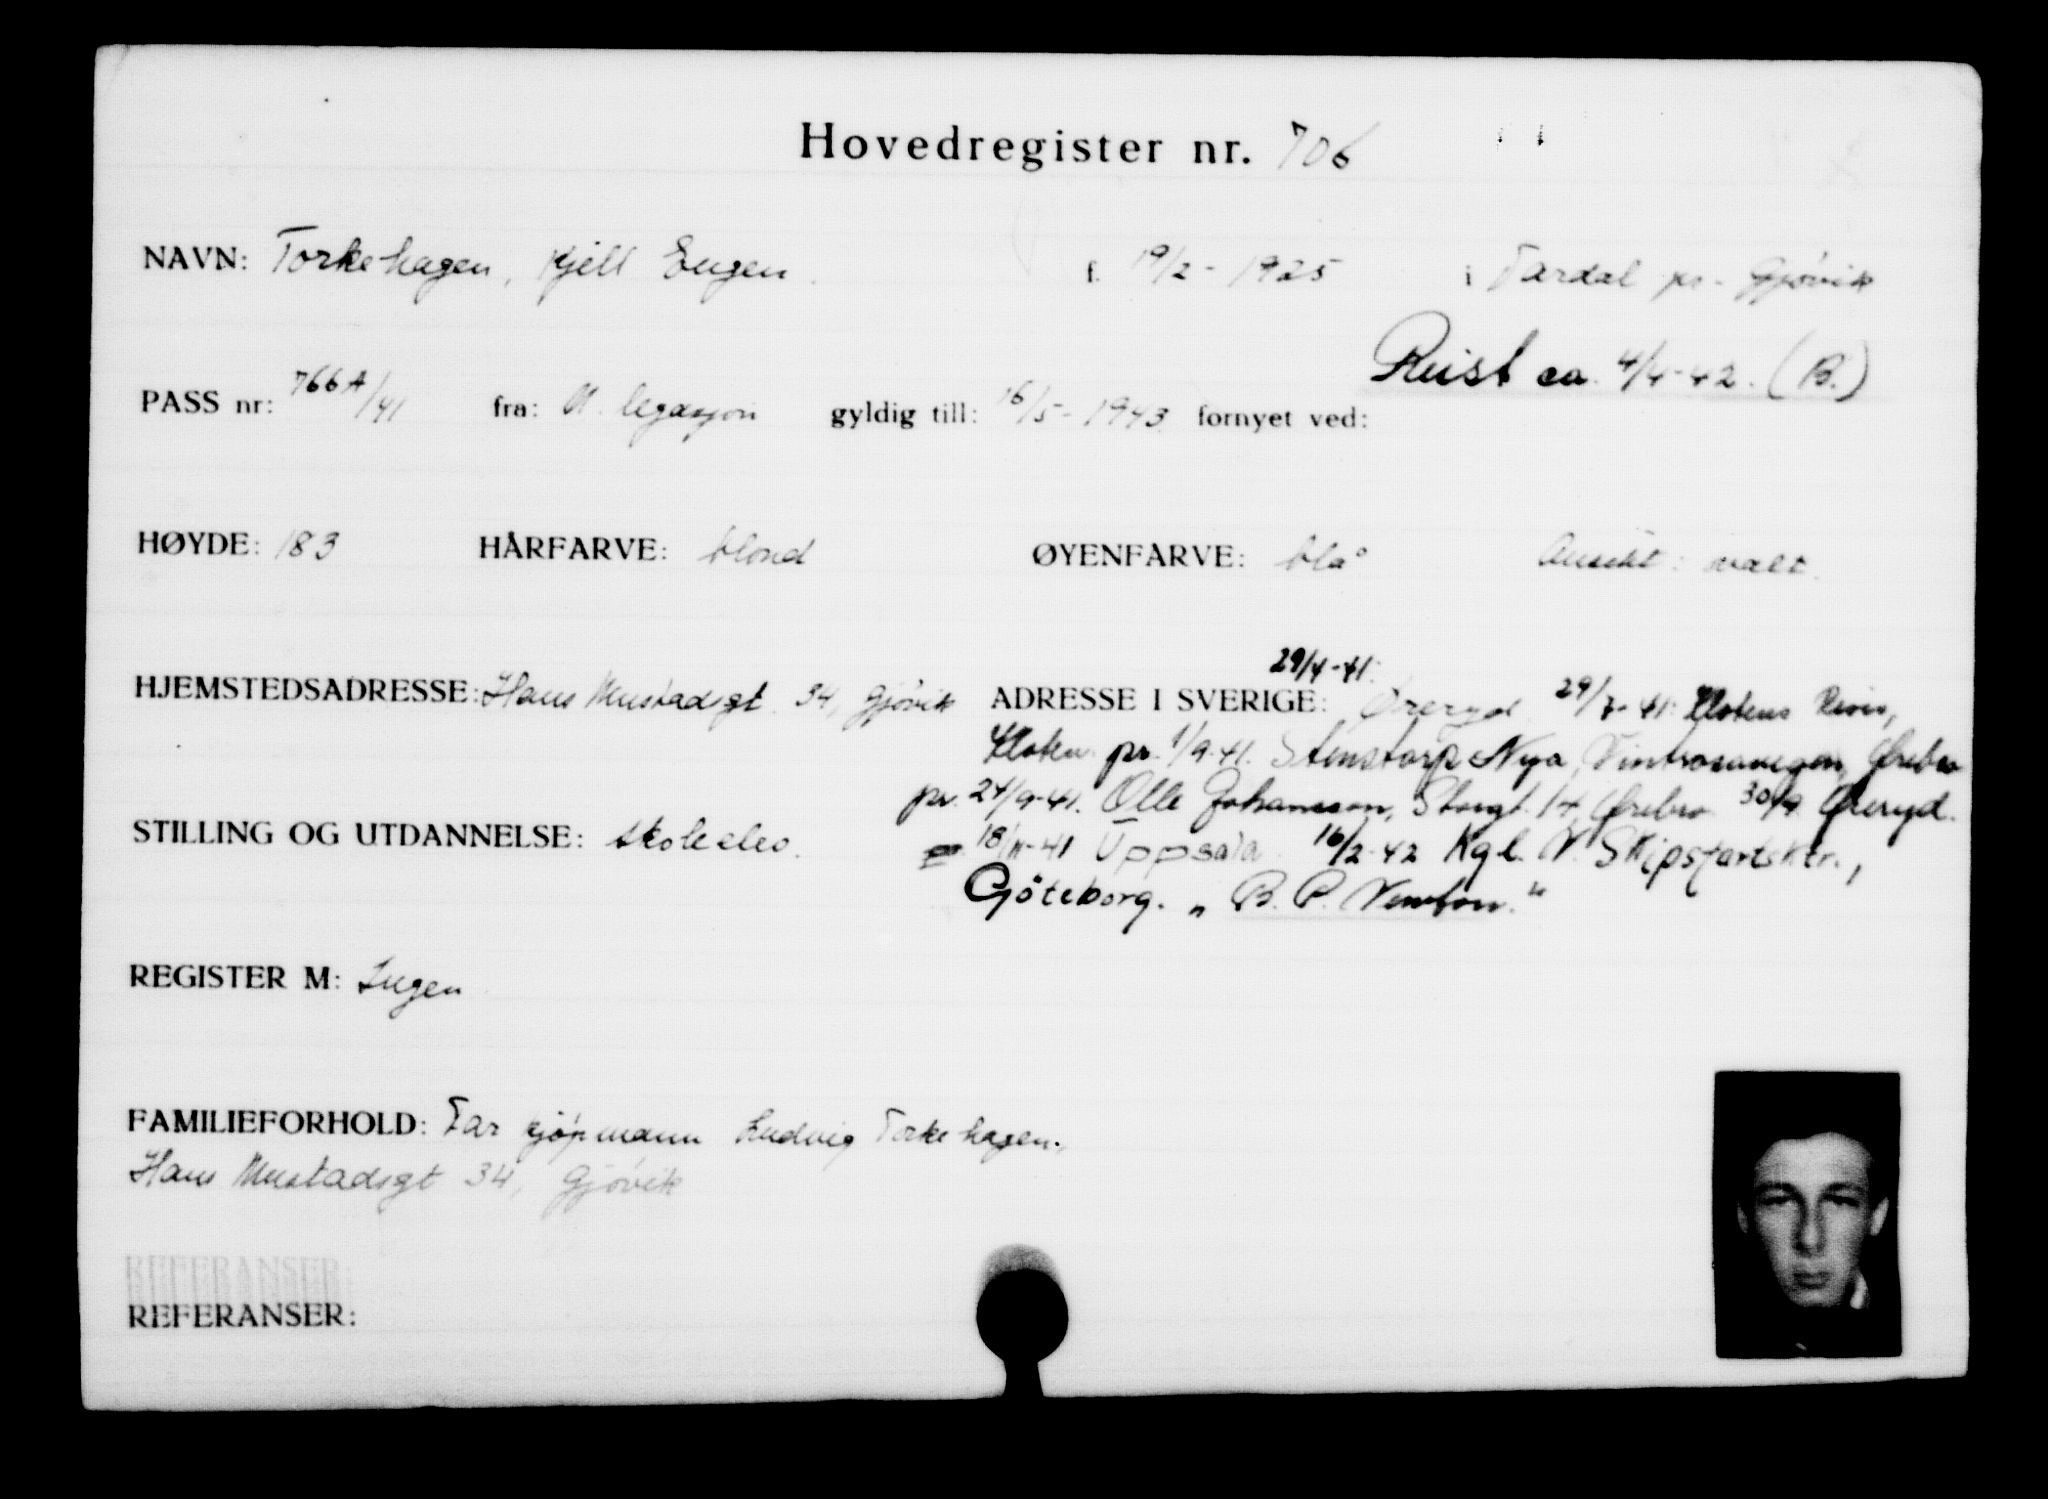 Hovedregister nr. 706
NAVN: Torkehagen, Kjell Eugen f. 19/2 - 1925 i Vardal pr. Gjøvik
Reist ca. 4/4-42. (B.)
PASS nr: 766A/41 fra: N. legasjon gyldig till: 16/5 - 1943 fornyet ved:
HØYDE: 183 HÅRFARVE: blond ØYENFARVE: blå Ansikt: ovalt.
29/4-41:
HJEMSTEDSADRESSE: Hans Mustadsgt. 34, Gjøvik ADRESSE I SVERIGE: Øreryd 29/7-41: Klotens Revir,
Kloten. pr. 1/9-41. Stenstorp Nya, Vintrosavegen, Ørebro
pr. 24/9-41. Olle Johansson, Storgt. 14, Ørebro 30/9 Øreryd.
STILLING OG UTDANNELSE: skoleelev. 18/11-41 Uppsala. 16/2-42 Kgl. N. Skipsfartsktr.,
Göteborg. „B. P. Newton."
REGISTER M: Ingen
FAMILIEFORHOLD: Far kjøpmann Ludvig Torkehagen.,
Hans Mustadsgt 34, Gjøvik
REFERANSER:
REFERANSER: